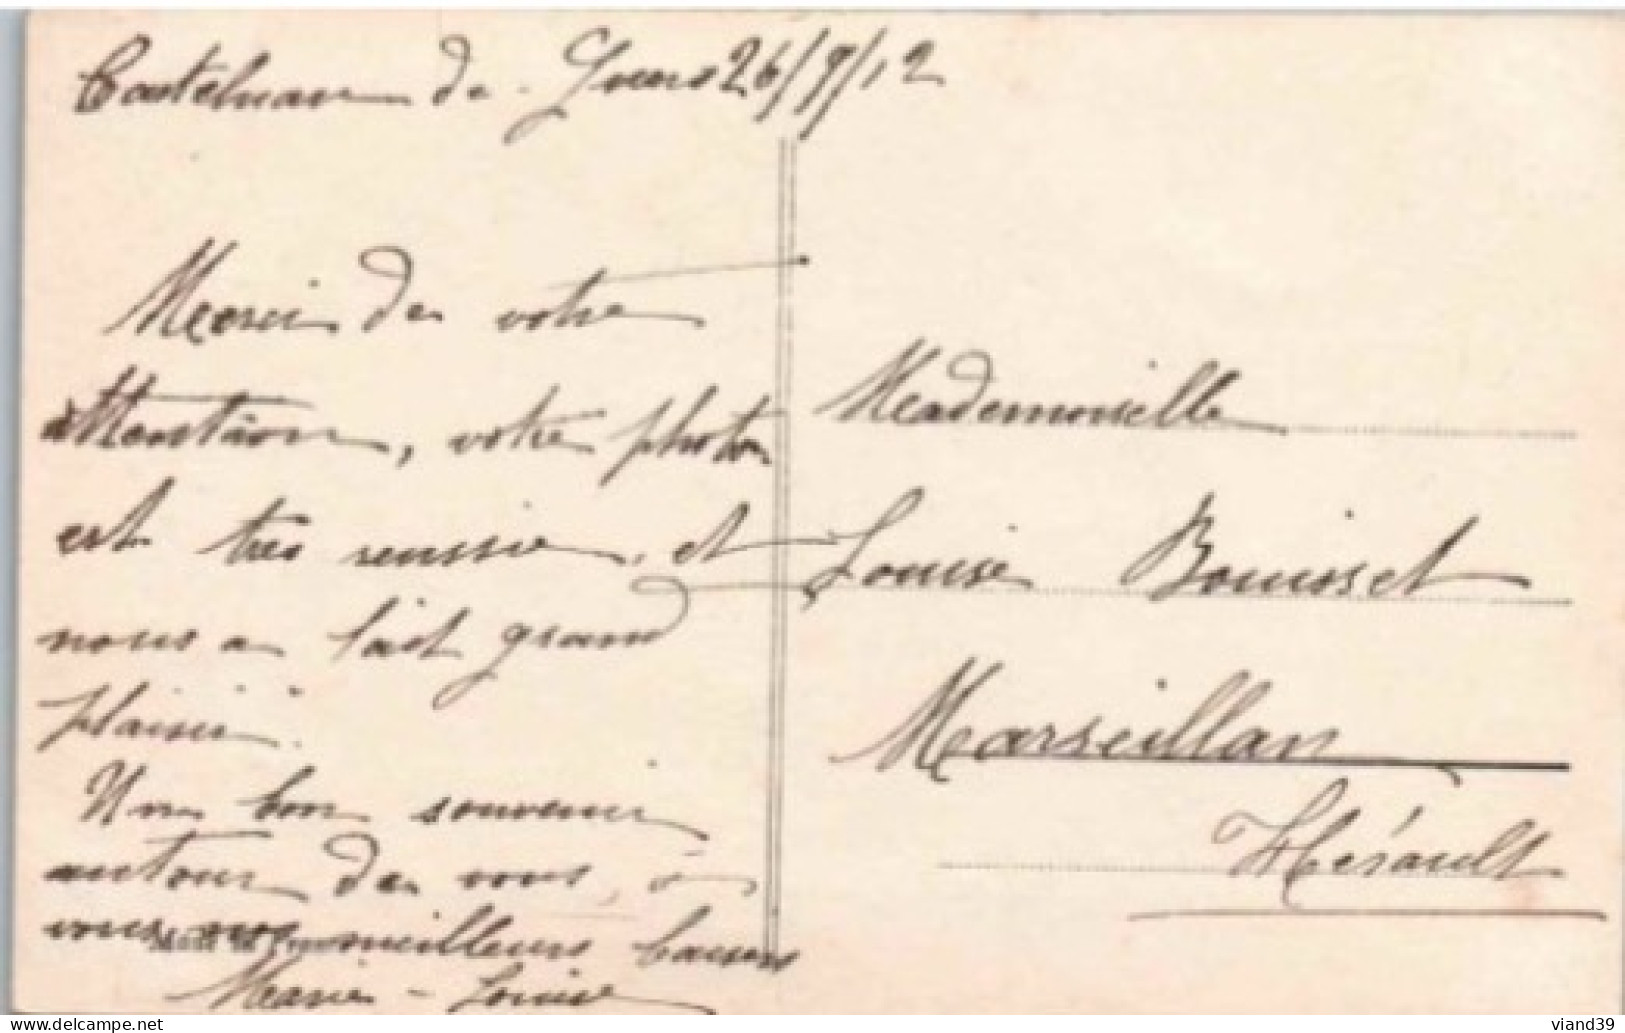 Castelnau de Guers 26/9/12
Merci de votre
attention, votre photo
est très reussie, et
nous a fait grand
plaisir.
Un bon souvenir
autour de vous, à
vous nos meilleurs baisers
Marie-Louise
Mademoiselle
Louise Bouisset
Marseillan
Hérault
viand39